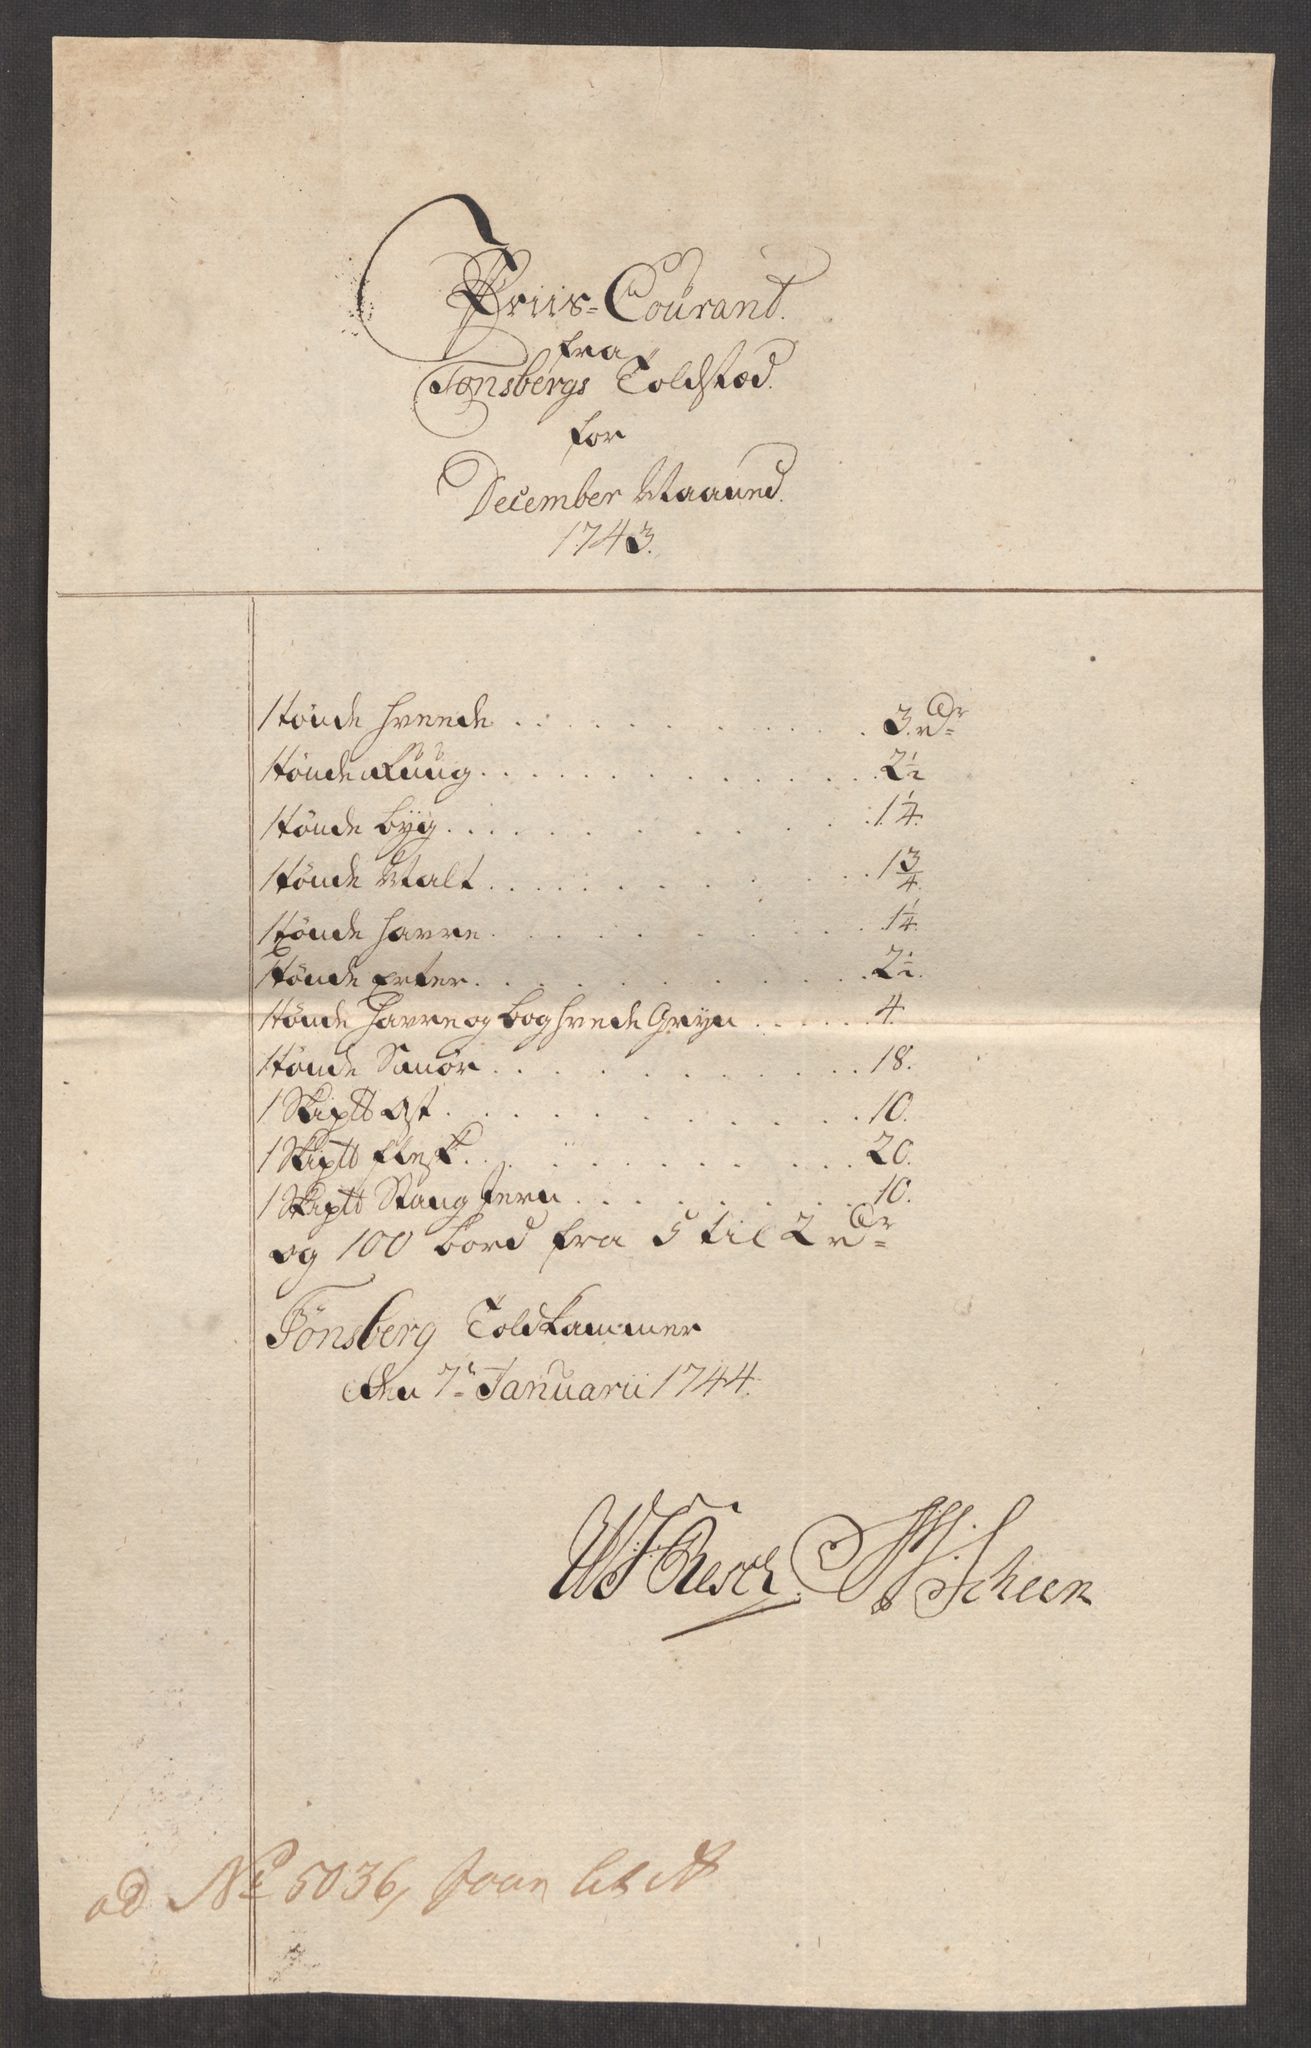 Priis-Courant.
fra
Tønsbergs Toldstæd.
for
December Maaned.
1743.
1 tönde hveede . . . 3 rdr
1 tönde Ruug . . . 2 1/2
1 tönde byg . . . 1 1/4.
1 tönde Malt . . . 1 3/4.
1 tönde havre . . . 1 1/4.
1 tönde Erter . . . 2 1/2.
1 tönde Havre og boghvede Gryn . . . 4.
1 tönde Smör . . . 18.
1 Skiptt Ost . . . 10.
1 Skiptt flesk . . . 20.
1 Skiptt Stang Jern . . . 10.
og 100 bord fra 5 til 2 rdr
Tönsberg Toldkammer
den 7de Januarii 1744.
Resch Scheen
ad No 5036, Joan